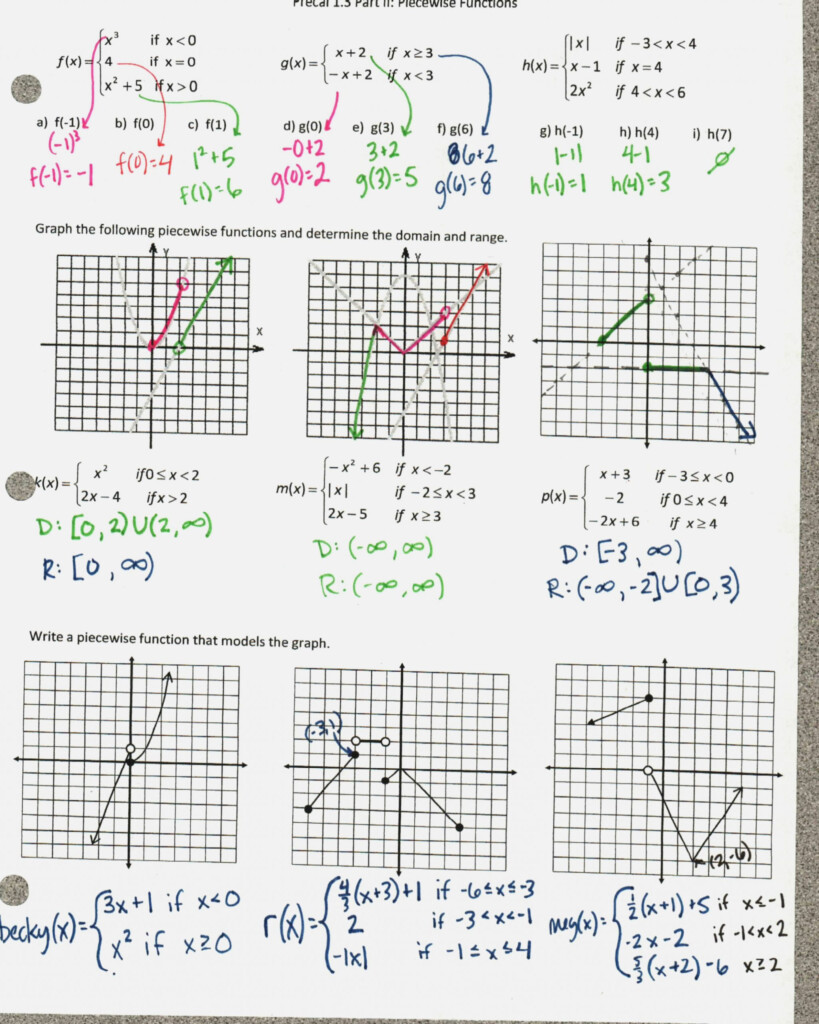 Precal 1.3 Part II: Piecewise Functions
f(x)= { x³ if x<0
4 if x=0
x²+5 if x>0
g(x)= { x+2 if x≥3
−x+2 if x<3
h(x)= { |x| if −3<x<4
x−1 if x=4
2x² if 4<x<6
a) f(-1) b) f(0) c) f(1) d) g(0) e) g(3) f) g(6) g) h(-1) h) h(4) i) h(7)
(-1)³
f(-1)=-1
f(0)=4
1²+5
f(1)=6
-0+2
g(0)=2
3+2
g(3)=5
6+2
g(6)=8
|-1|
h(-1)=1
4-1
h(4)=3
∅
Graph the following piecewise functions and determine the domain and range.
Y
X
Y
X
k(x)= { x² if 0≤x<2
2x−4 if x>2
D: [0,2)∪(2,∞)
R: [0,∞)
m(x)= { −x²+6 if x<−2
|x| if −2≤x<3
2x−5 if x≥3
D: (-∞,∞)
R: (-∞,∞)
p(x)= { x+3 if −3≤x<0
−2 if 0≤x<4
−2x+6 if x≥4
D: [-3,∞)
R: (-∞,-2]∪[0,3)
Write a piecewise function that models the graph.
(-3,1)
(2,-6)
becky(x)= { 3x+1 if x<0
x² if x≥0
r(x)= { 4/3(x+3)+1 if -6≤x≤-3
2 if -3<x<-1
-|x| if -1≤x≤4
meg(x)= { 1/2(x+1)+5 if x≤-1
-2x-2 if -1<x<2
5/3(x+2)-6 x≥2